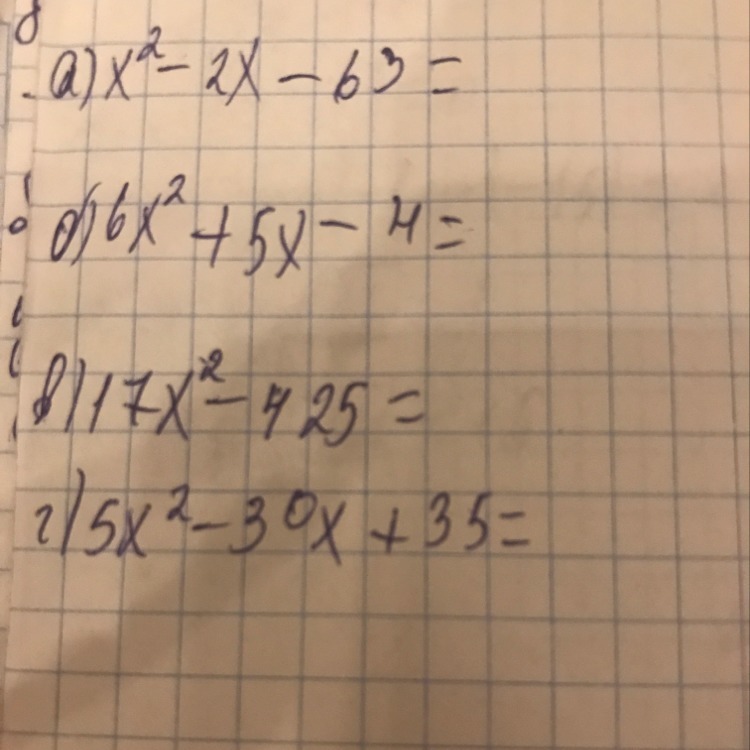 а) x² - 2x - 63 =
б) 6x² + 5x - 4 =
в) 17x² - 425 =
г) 5x² - 30x + 35 =